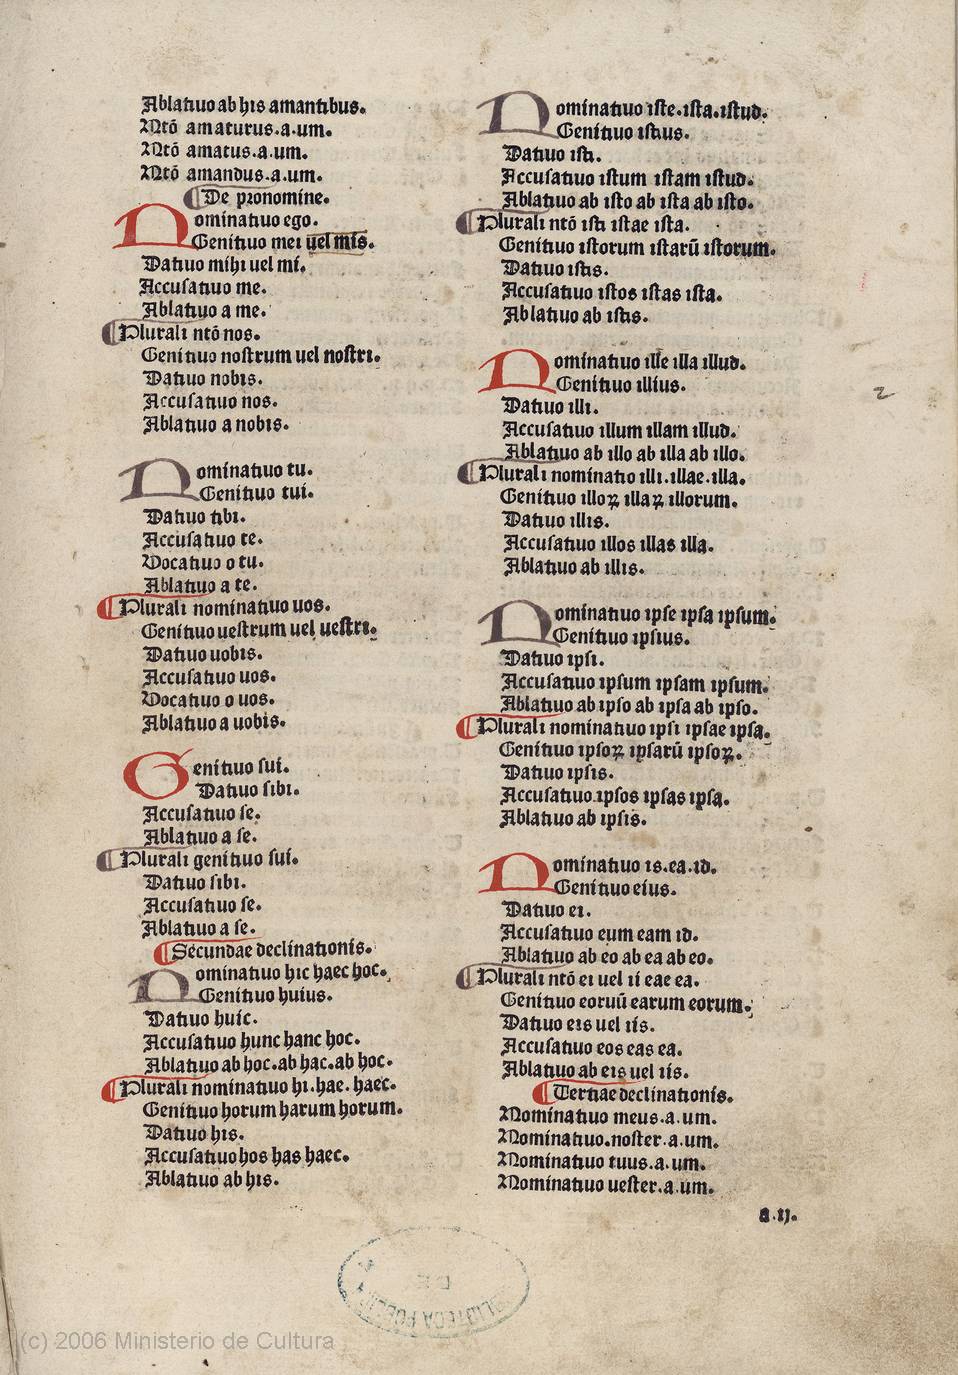 Ablatiuo ab his amantibus.
Ntō amaturus.a.um.
Ntō amatus.a.um.
Ntō amandus.a.um.
De pronomine.
Nominatiuo ego.
Genitiuo mei uel mis.
Datiuo mihi uel mi.
Accusatiuo me.
Ablatiuo a me.
Plurali ntō nos.
Genitiuo nostrum uel nostri.
Datiuo nobis.
Accusatiuo nos.
Ablatiuo a nobis.
Nominatiuo tu.
Genitiuo tui.
Datiuo tibi.
Accusatiuo te.
Vocatiuo o tu.
Ablatiuo a te.
Plurali nominatiuo uos.
Genitiuo uestrum uel uestri.
Datiuo uobis.
Accusatiuo uos.
Vocatiuo o uos.
Ablatiuo a uobis.
Genitiuo sui.
Datiuo sibi.
Accusatiuo se.
Ablatiuo a se.
Plurali genitiuo sui.
Datiuo sibi.
Accusatiuo se.
Ablatiuo a se.
Secundae declinationis.
Nominatiuo hic haec hoc.
Genitiuo huius.
Datiuo huic.
Accusatiuo hunc hanc hoc.
Ablatiuo ab hoc.ab hac.ab hoc.
Plurali nominatiuo hi.hae.haec.
Genitiuo horum harum horum.
Datiuo his.
Accusatiuo hos has haec.
Ablatiuo ab his.
Nominatiuo iste.ista.istud.
Genitiuo istius.
Datiuo isti.
Accusatiuo istum istam istud.
Ablatiuo ab isto ab ista ab isto.
Plurali ntō isti istae ista.
Genitiuo istorum istarū istorum.
Datiuo istis.
Accusatiuo istos istas ista.
Ablatiuo ab istis.
Nominatiuo ille illa illud.
Genitiuo illius.
Datiuo illi.
Accusatiuo illum illam illud.
Ablatiuo ab illo ab illa ab illo.
Plurali nominatio illi.illae.illa.
Genitiuo illoꝝ illaꝝ illorum.
Datiuo illis.
Accusatiuo illos illas illa.
Ablatiuo ab illis.
Nominatiuo ipse ipsa ipsum.
Genitiuo ipsius.
Datiuo ipsi.
Accusatiuo ipsum ipsam ipsum.
Ablatiuo ab ipso ab ipsa ab ipso.
Plurali nominatiuo ipsi ipsae ipsa.
Genitiuo ipsoꝝ ipsarū ipsoꝝ.
Datiuo ipsis.
Accusatiuo.ipsos ipsas ipsa.
Ablatiuo ab ipsis.
Nominatiuo is.ea.id.
Genitiuo eius.
Datiuo ei.
Accusatiuo eum eam id.
Ablatiuo ab eo ab ea ab eo.
Plurali ntō ei uel ii eae ea.
Genitiuo eoruū earum eorum.
Datiuo eis uel iis.
Accusatiuo eos eas ea.
Ablatiuo ab eis uel iis.
Tertiae declinationis.
Nominatiuo meus.a.um.
Nominatiuo.noster.a.um.
Nominatiuo tuus.a.um.
Nominatiuo uester.a.um.
a.ij.
2
(c) 2006 Ministerio de Cultura